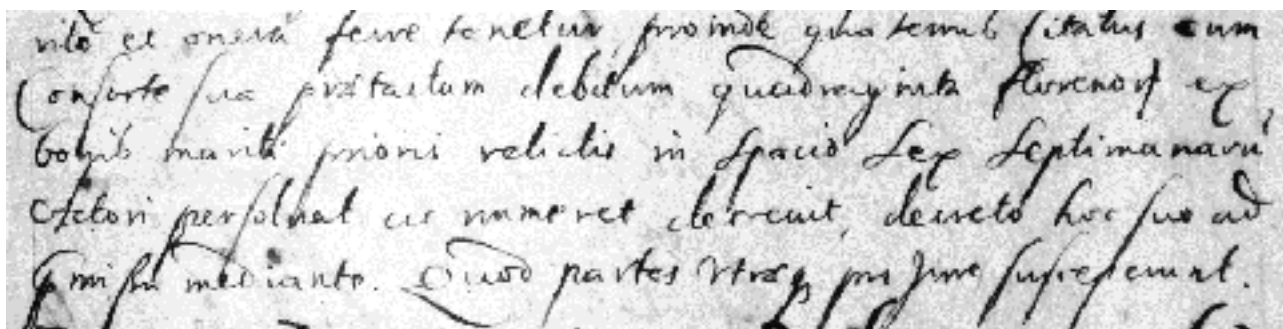 et onera ferre tenetur, proinde quatenus Citatus cum
Consorte sua prætactum debitum quadraginta florenorum ex
bonis mariti prioris relictis in spacio sex septimanarũ
Actori persolvat ac numeret decrevit, decreto hoc suo ad
præmissa mediante. Quod partes utræq pro jure susceperunt.